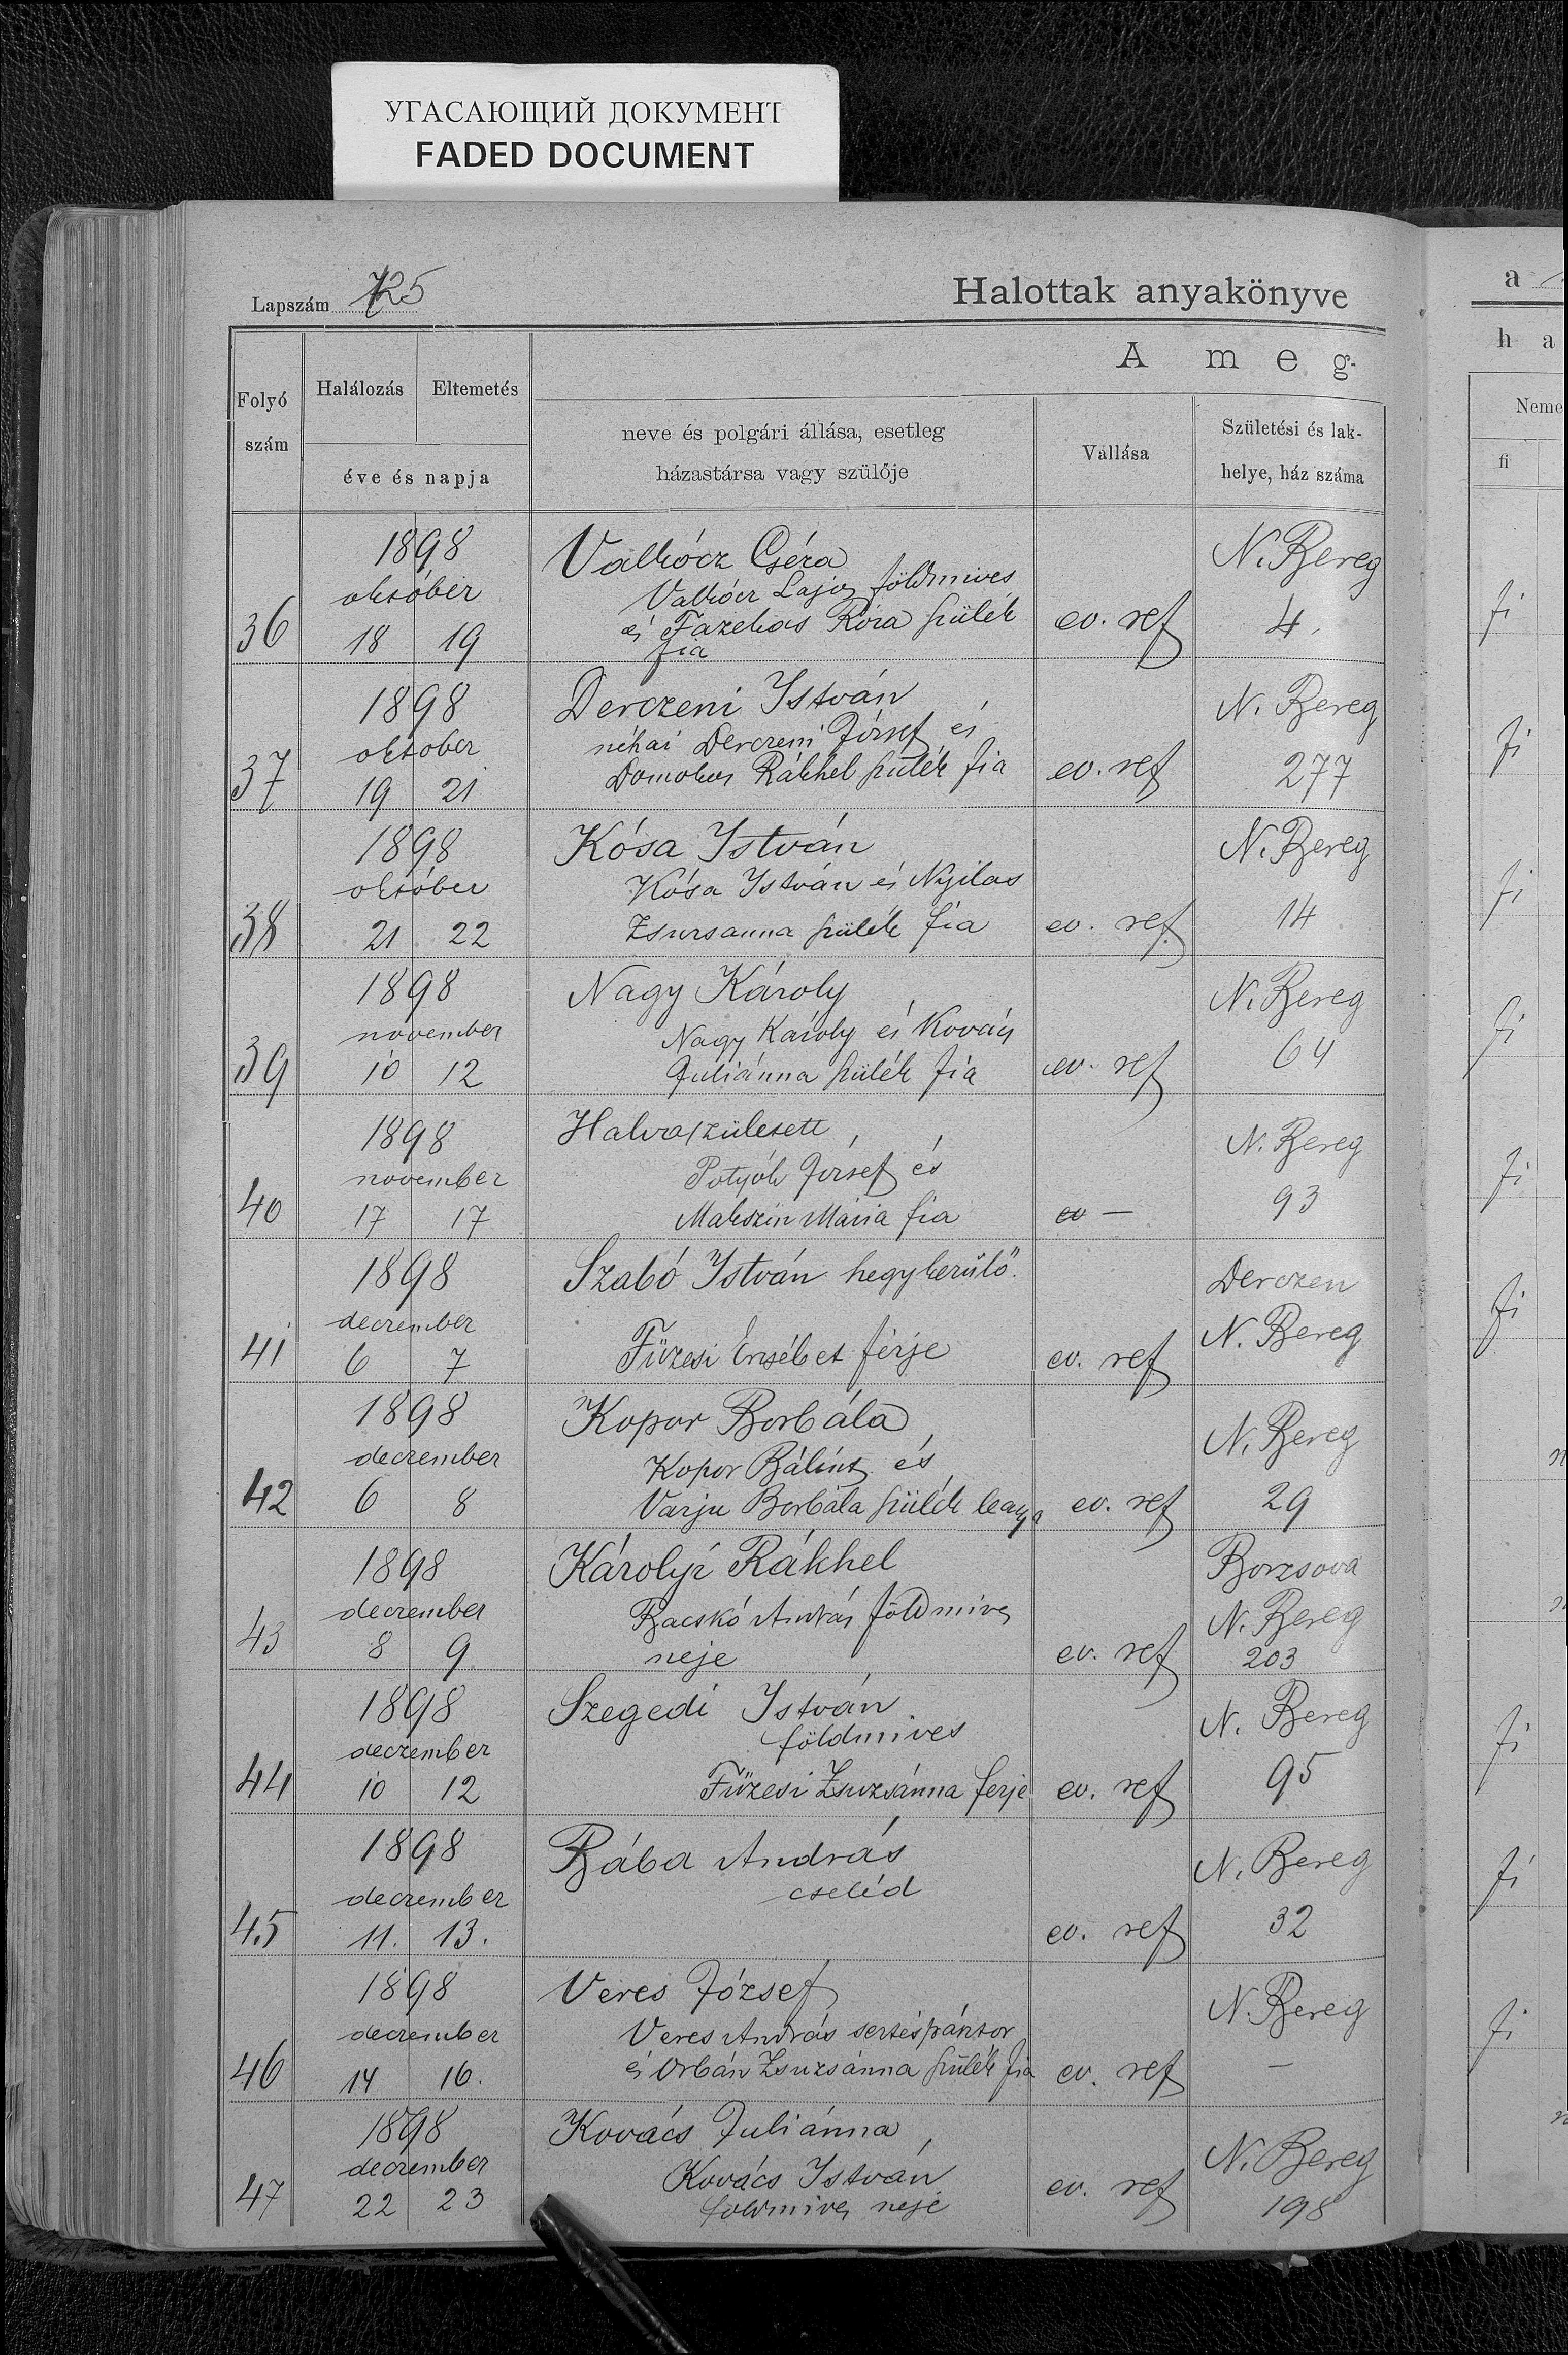 УГАСАЮЩИЙ ДОКУМЕНТ
FADED DOCUMENT
Lapszám 125
Halottak anyakönyve
A meg-
Folyó szám
Halálozás Eltemetés
éve és napja
neve és polgári állása, esetleg
házastársa vagy szülője
Vallása
Születési és lak-
helye, ház száma
1898 Valkócz Géza N. Bereg
október Valkócz Lajos földmives
36 18 19 és Fazekas Róza szülék ev. ref 4.
fia
1898 Derczeni István N. Bereg
oktober néhai Derczeni József és
37 19 21 Domokos Rákhel szülék fia ev. ref 277
1898 Kósa István N. Bereg
október Kósa István és Nyilas
38 21 22 Zsuzsanna szülék fia ev. ref. 14
1898 Nagy Károly N. Bereg
november Nagy Károly és Kovács
39 10 12 Juliánna szülék fia ev. ref 64
1898 Halvaszületett N. Bereg
november Potyók József és
40 17 17 Makszin Mária fia ev — 93
1898 Szabó István hegykerülő. Derczen
deczember N. Bereg
41 6 7 Füzesi Erzsébet férje ev. ref
1898 Kopor Borbála N. Bereg
deczember Kopor Bálint és
42 6 8 Varju Borbála szülék leanya ev. ref 29
1898 Károlyi Rákhel Borzsova
deczember Bacskó András földmives N. Bereg
43 8 9 neje ev. ref 203
1898 Szegedi István N. Bereg
deczember földmives
44 10 12 Füzesi Zsuzsánna ferje ev. ref 95
1898 Bába András N. Bereg
deczember cseléd
45 11. 13. ev. ref 32
1898 Veres József N. Bereg
deczember Veres András sertéspásztor
46 14 16. és Orbán Zsuzsánna szülék fia ev. ref —
1898 Kovács Juliánna N. Bereg
deczember Kovács István
47 22 23 földmives neje ev. ref 198
a
h a
Neme
fi
fi
fi
fi
fi
fi
fi
fi
fi
fi